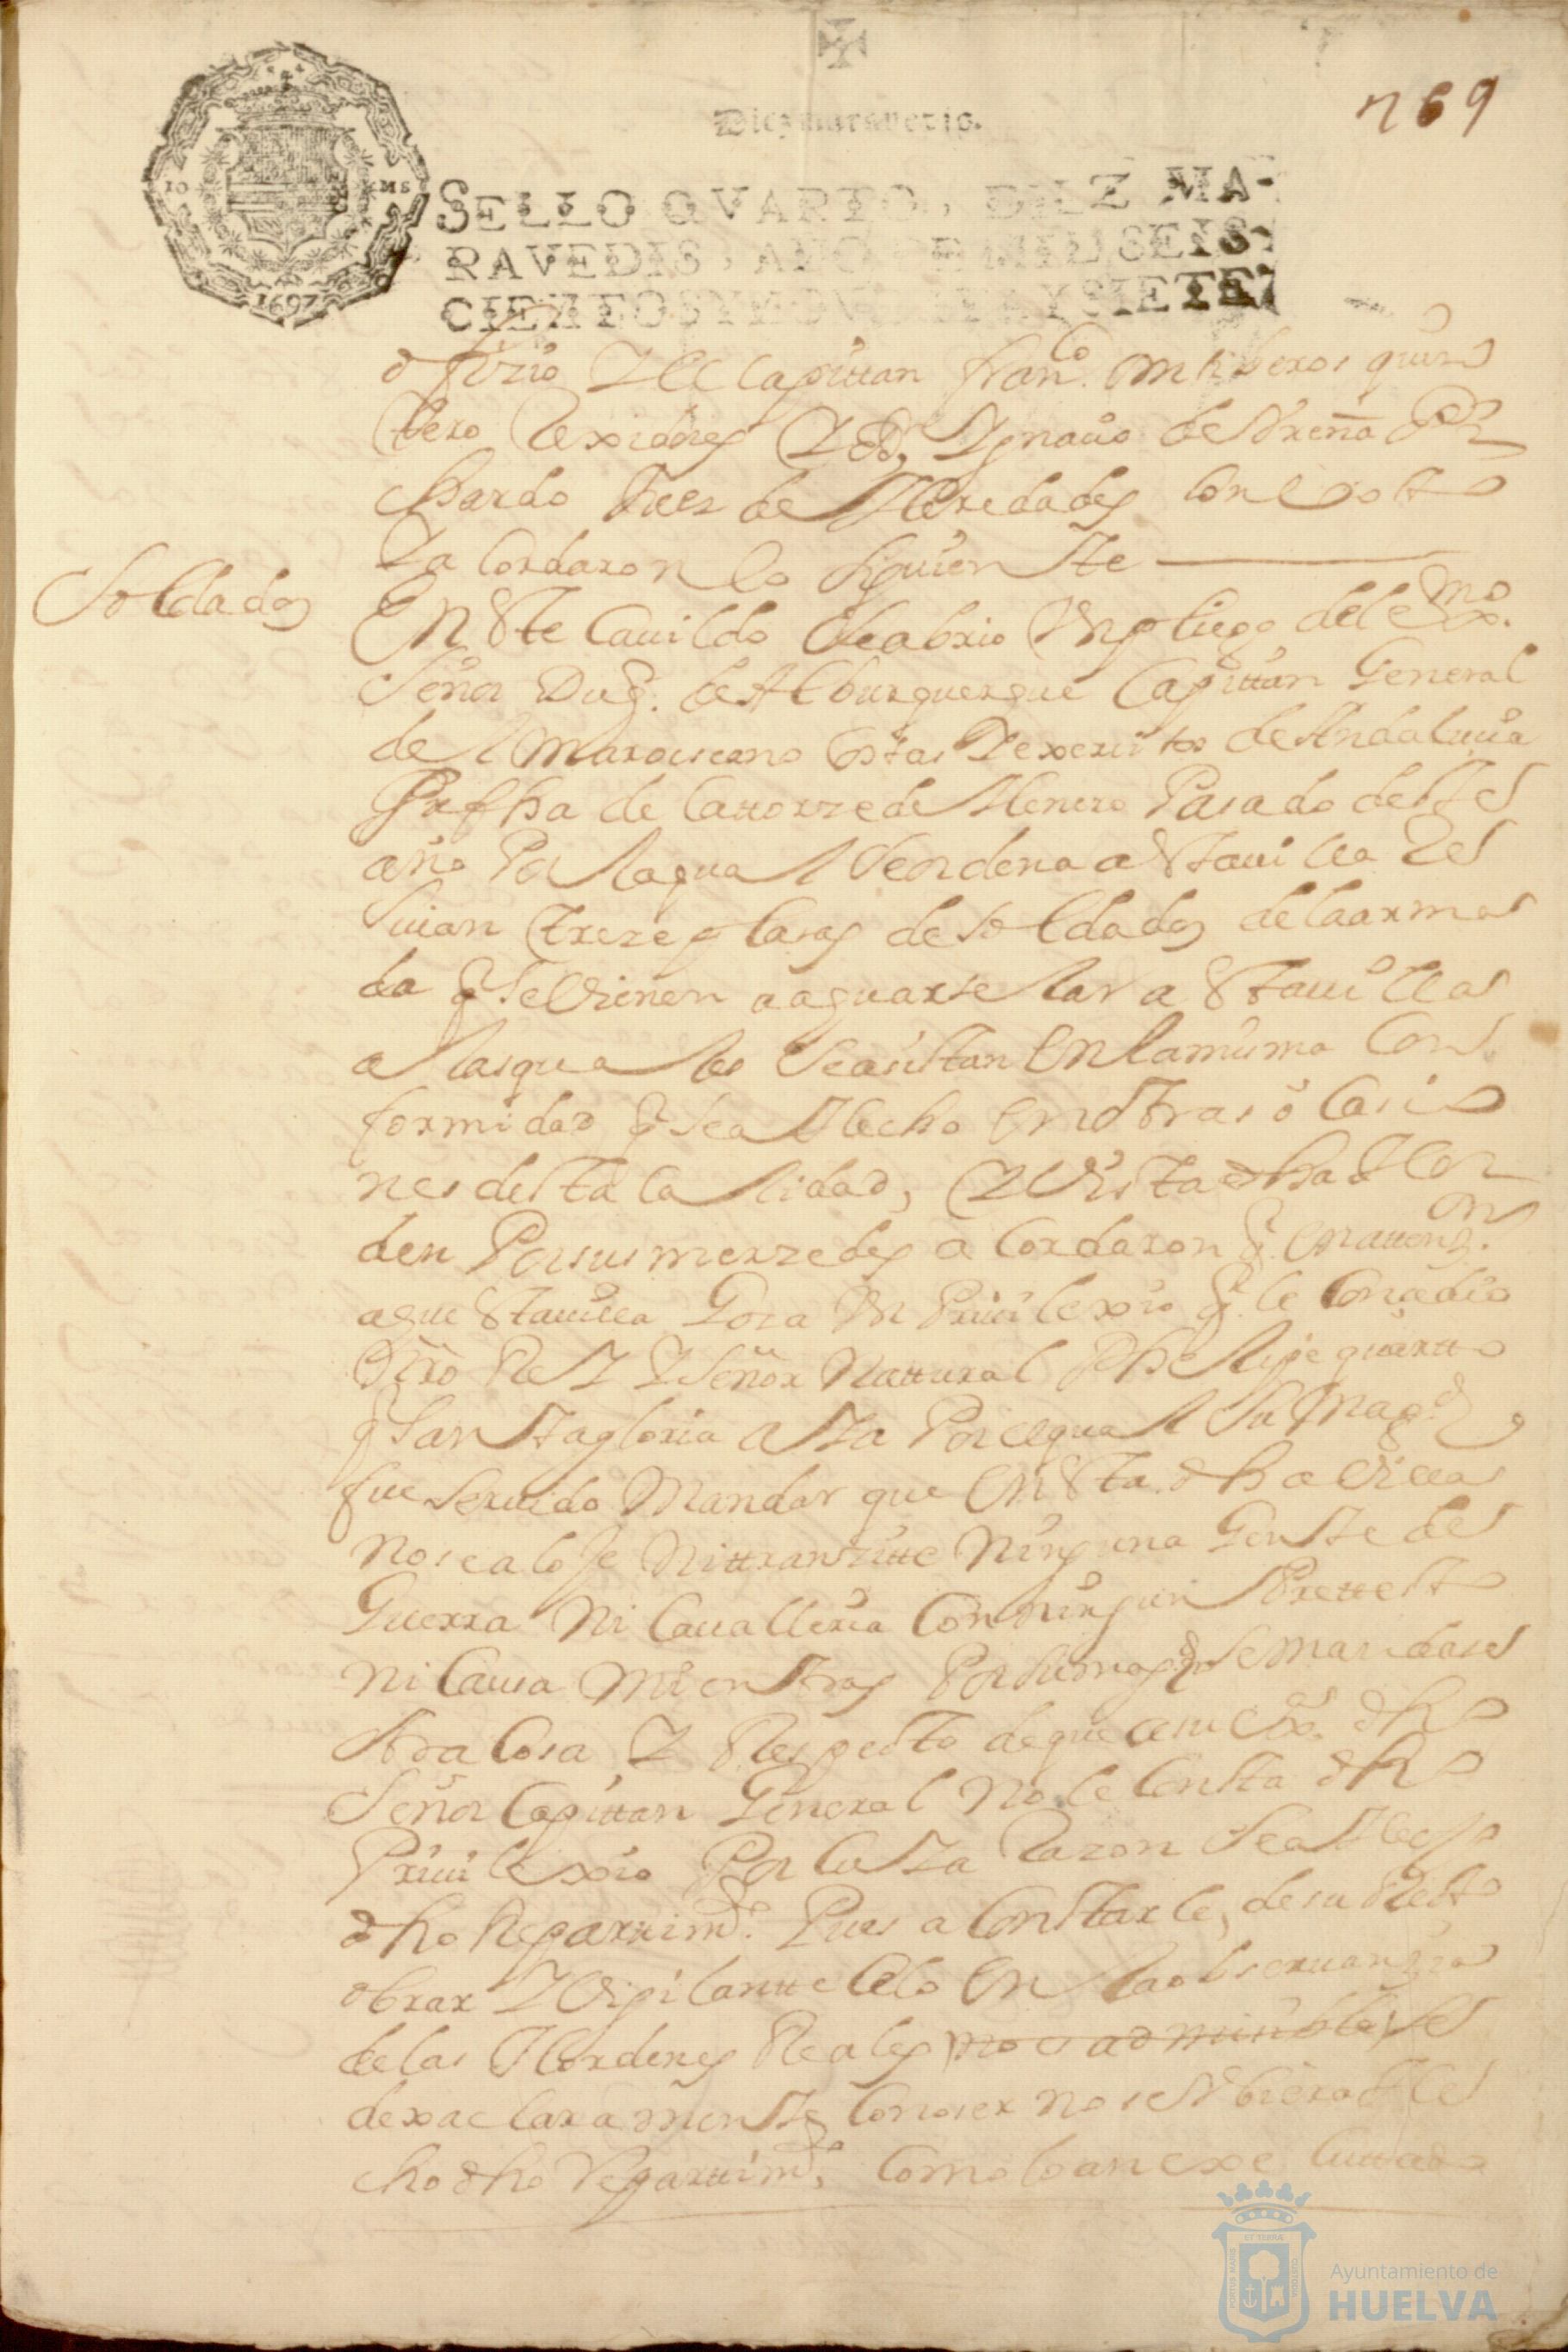 Diez maravedis.
769
10 MS
1697
SELLO QVARTO, DIEZ MA-
RAVEDIS, AÑO DE MIL SEIS-
CIENTOS Y NOVENTA Y SIETE
ofizio Y el Capittan franco. quin
tero Rexidores Y Dn Ygnacio de
chardo Juez de Heredades con boto
Y acordaron lo siguiente
Soldados
En Este Cauildo Se abrio Un pliego del exmo.
Señor Duq. de Alburquerque Capittan General
del Mar oceano Costas Y exercitos de Andalucia
Su fha de Cattorze de Henero Pasado deste
año Por la qual Se ordena a Esta uilla Re
siuan treze plasas de Soldados de la arma
da q Se Vienen a aquartelar a Esta uilla
a las quales Se asistan En la misma Con
formidad q Sea Hecho En otras ocasio
nes desta Calidad, Y Vista dha Hor
den Por sus merzedes acordaron q. En atten.on
a que Esta uilla Goza Un Priuilexio q. le Conzedio
Nro Rey Y Señor Nattural Phelipe quartto
q Santa gloria aya Por el qual Su Mag.d
fue Seruido Mandar que En Esta dha Villa
no se aloje Ni ttranzitte Ninguna Gente de
Guerra Ni Caualleria Con ningun Prettesto
Ni Causa Mientras Por su mag.d no Se mandase
otra Cosa Y Respecto de que a su Ex.a dho
Señor Capittan General No le Consta dho
Priuilexio Por Cuya Razon Sea Hecho
dho Repartim.to Pues a Constarle, de su Recto
obrar Y Vigilantte Celo En la obseruanzia
de las Hordenes Reales se
dexa claramente Conoser no se Vbiera He
cho dho Repartim.to Como lo an executtado
Ayuntamiento de
HUELVA